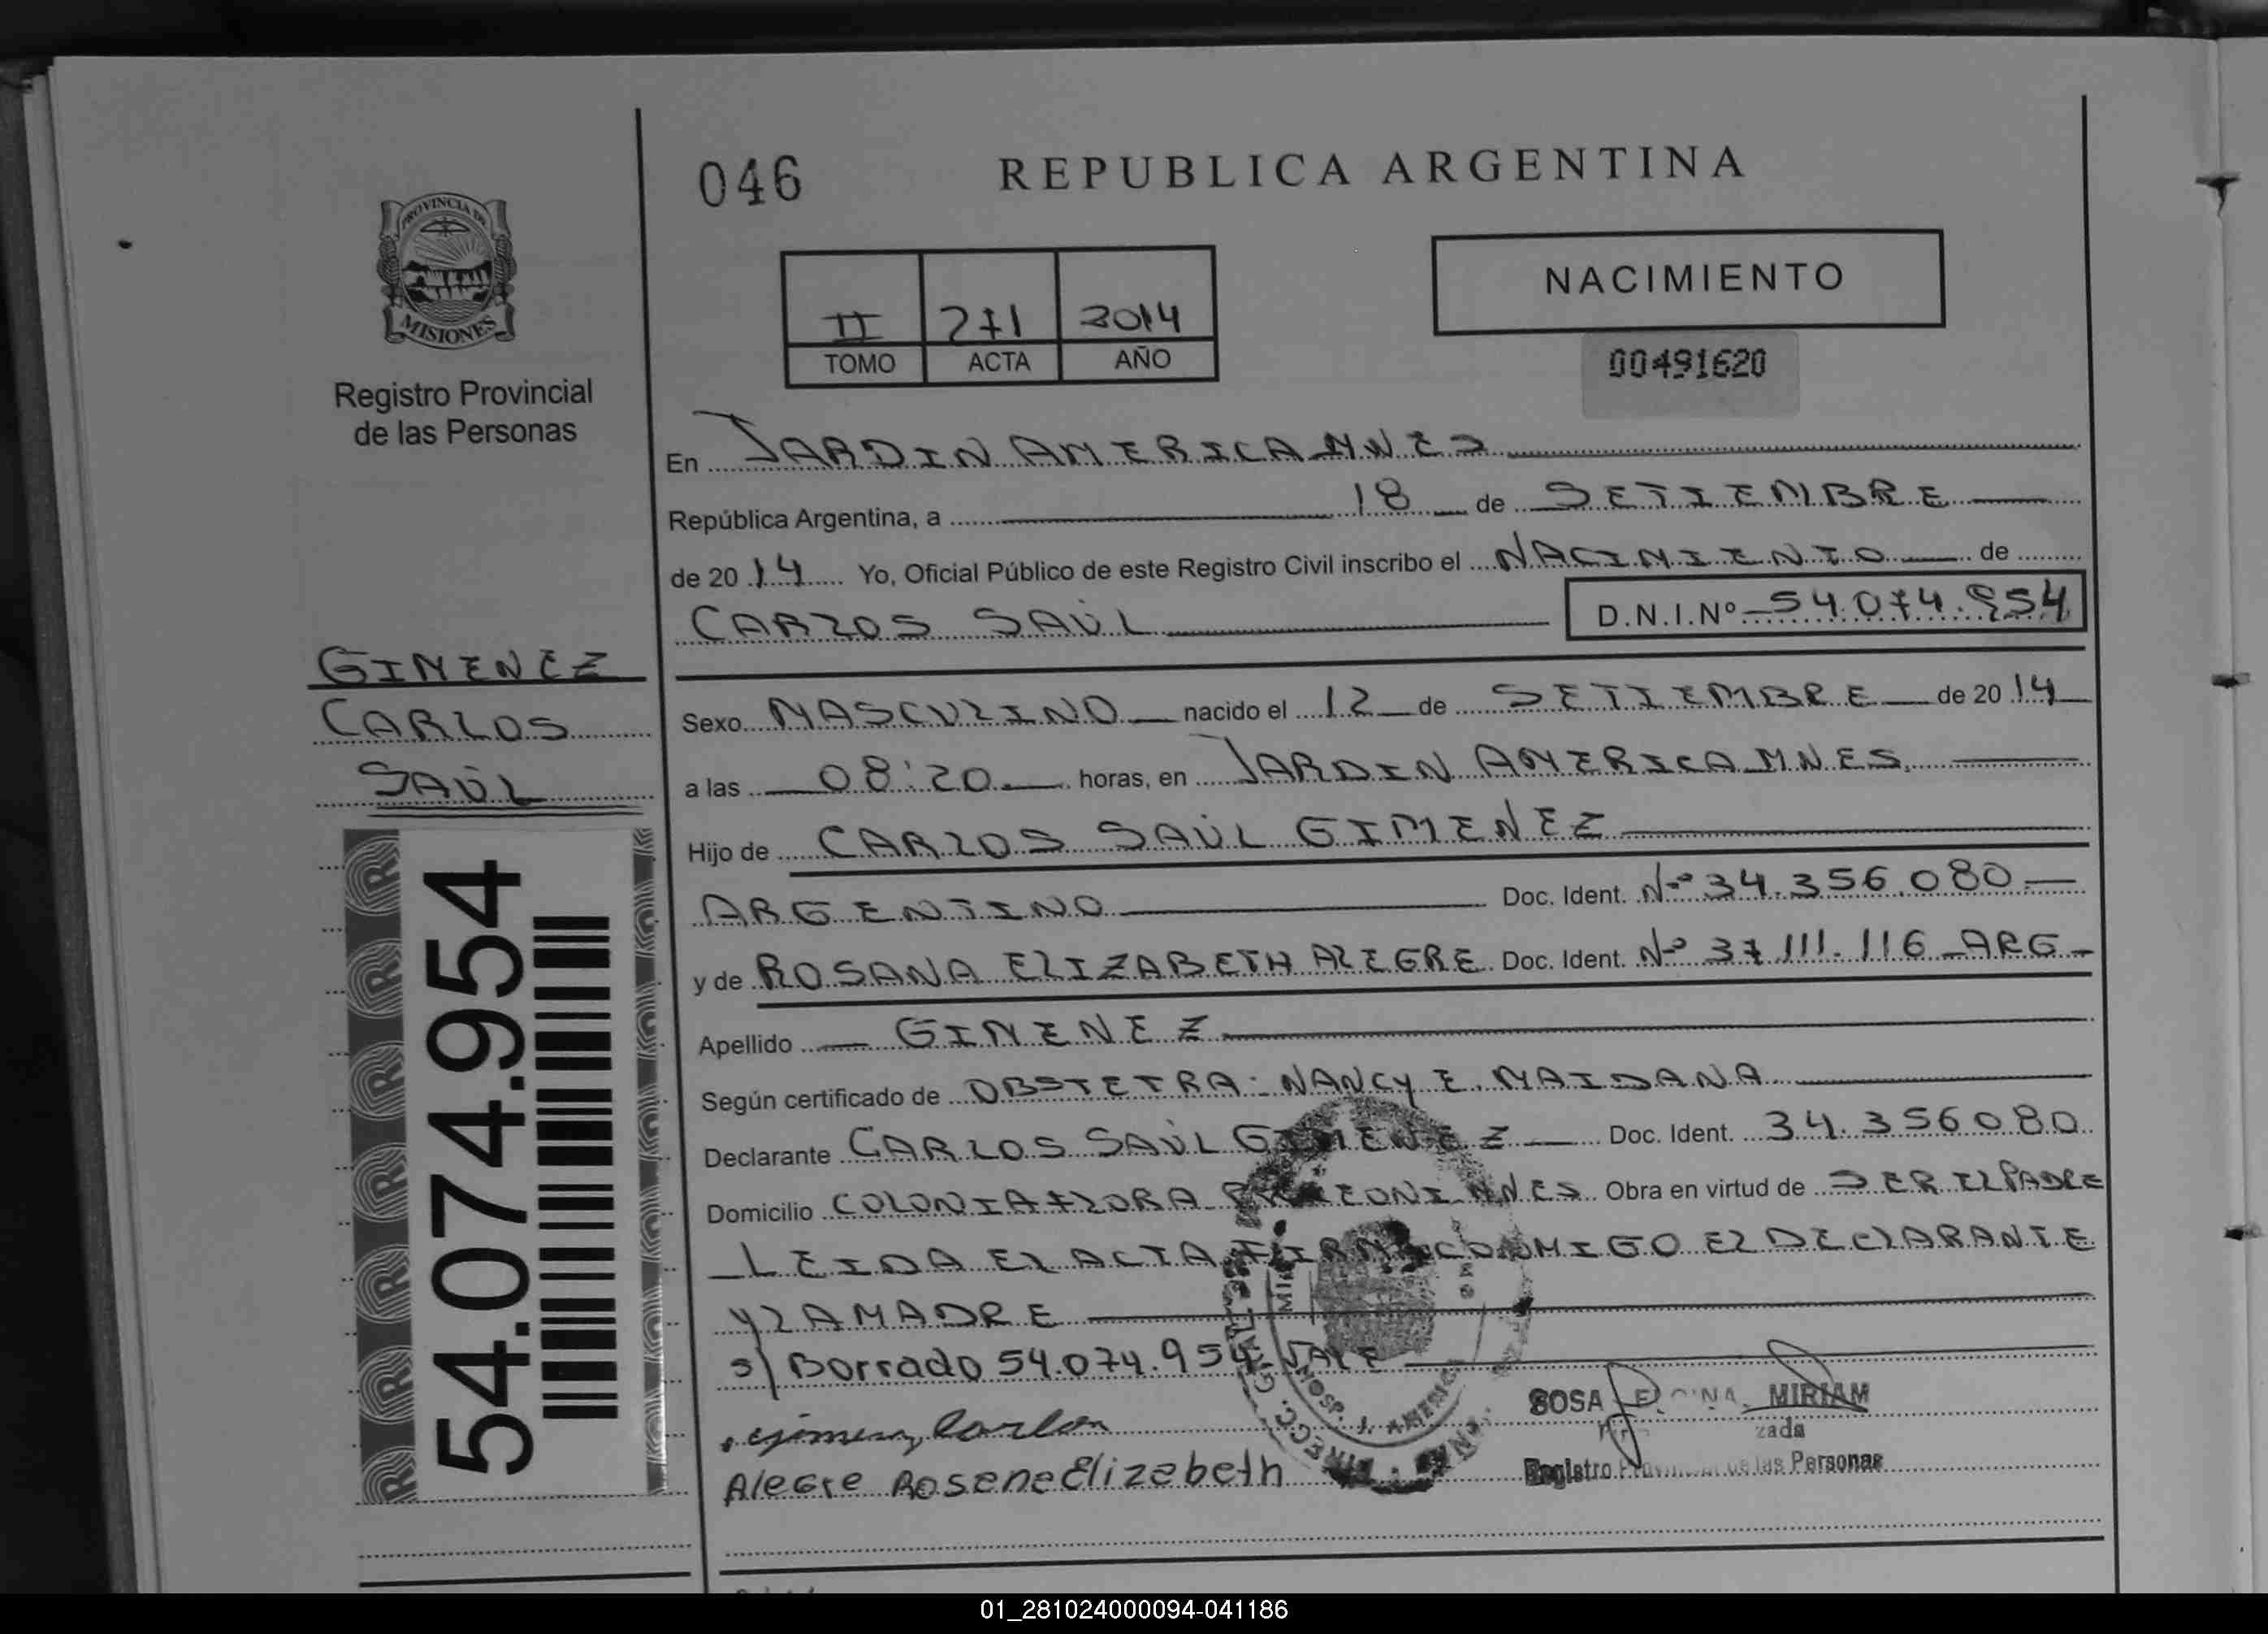 046 REPUBLICA ARGENTINA
PROVINCIA DE
MISIONES
Registro Provincial
de las Personas
II 271 2014
TOMO ACTA AÑO
NACIMIENTO
00491620
En JARDIN AMERICA MNES
República Argentina, a 18 de SETIEMBRE
de 20 14 Yo, Oficial Público de este Registro Civil inscribo el NACIMIENTO de
CARLOS SAÚL D.N.I.Nº 54.074.954
GIMENEZ
CARLOS
SAÚL
Sexo MASCULINO nacido el 12 de SETIEMBRE de 20 14
a las 08:20 horas, en JARDIN AMERICA MNES.
Hijo de CARLOS SAÚL GIMENEZ
ARGENTINO Doc. Ident. Nº 34.356.080
y de ROSANA ELIZABETH ALEGRE Doc. Ident. Nº 37.111.116 ARG
Apellido GIMENEZ
Según certificado de OBSTETRA: NANCY E. MAIDANA
Declarante CARLOS SAÚL GIMENEZ Doc. Ident. 34.356080
Domicilio COLONIA FLORA MNES Obra en virtud de SER EL PADRE
LEIDA EL ACTA FIRMA CONMIGO EL DECLARANTE
Y LA MADRE
s/ Borrado 54.074.954 VALE
Gimenez Carlos
Alegre Rosana Elizabeth
SOSA MIRIAM
zada
Registro Provincial de las Personas
HOSP. J. AMERICA
54.074.954
01_281024000094-041186